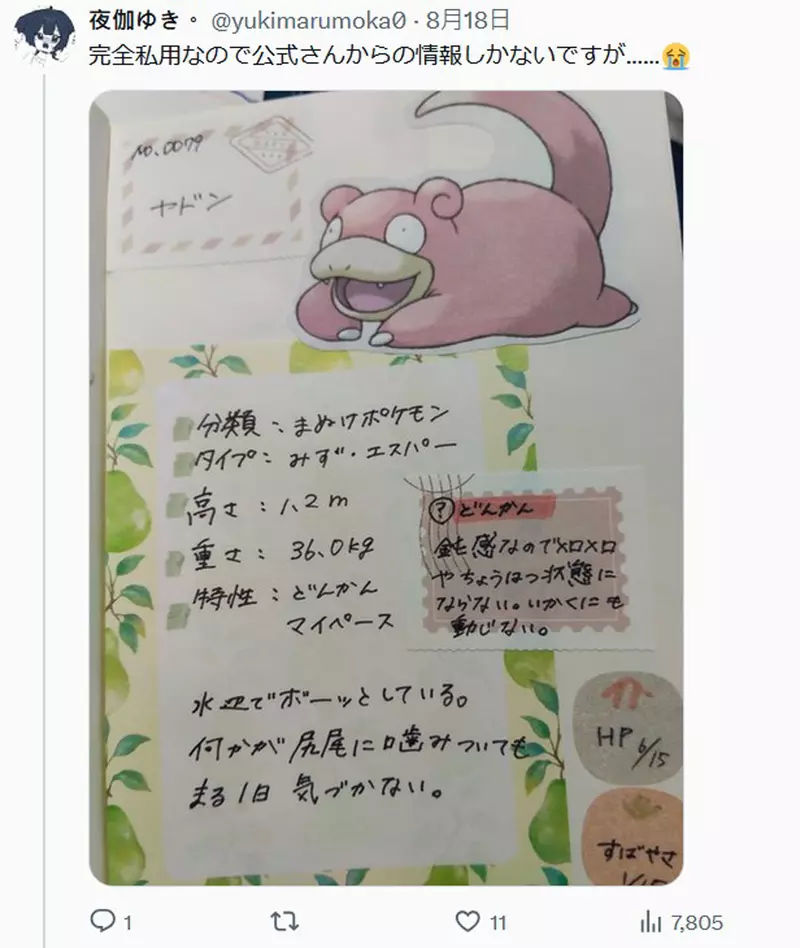 夜伽ゆき。 @yukimarumoka0 · 8月18日
完全私用なので公式さんからの情報しかないですが......😭
No.0079
ヤドン
分類：まぬけポケモン
タイプ：みず・エスパー
高さ：1.2m
重さ：36.0kg
特性：どんかん
マイペース
? どんかん
鈍感なのでメロメロ
やちょうはつ状態に
ならない。いかくにも
動じない。
水辺でボーッとしている。
何かが尻尾に噛みついても
まる1日気づかない。
HP 6/15
すばやさ
1
11
7,805